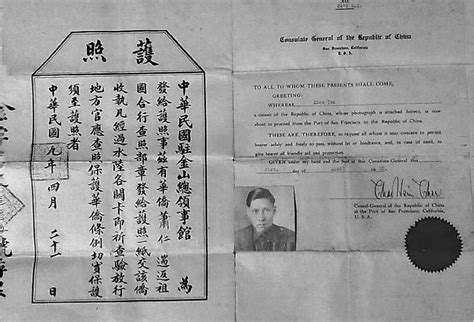 護照
中華民國駐金山總領事館 為
發給護照事茲有華僑蕭仁遄返祖
國合行查照部章發給護照一紙交該僑
收執凡經過水陸各關卡即祈查驗放行
地方官應查照保護華僑條例切實保護
須至護照者
中華民國九年四月二十一日
Consulate General of the Republic of China
San Francisco, California
U.S.A.
TO ALL TO WHOM THESE PRESENTS SHALL COME,
GREETING:
WHEREAS
a citizen of the Republic of China, whose photograph is attached hereto, is now
about to proceed from the Port of San Francisco to the Republic of China.
THESE ARE, THEREFORE, to request all whom it may concern to permit
safely and freely to pass, without let or hindrance, and, in case of need, to
give all friendly aid and protection.
GIVEN under my hand and the Seal of this Consulate-General
21st. day of April
Consul-General of the Republic of China
at the Port of San Francisco, California,
U.S.A.